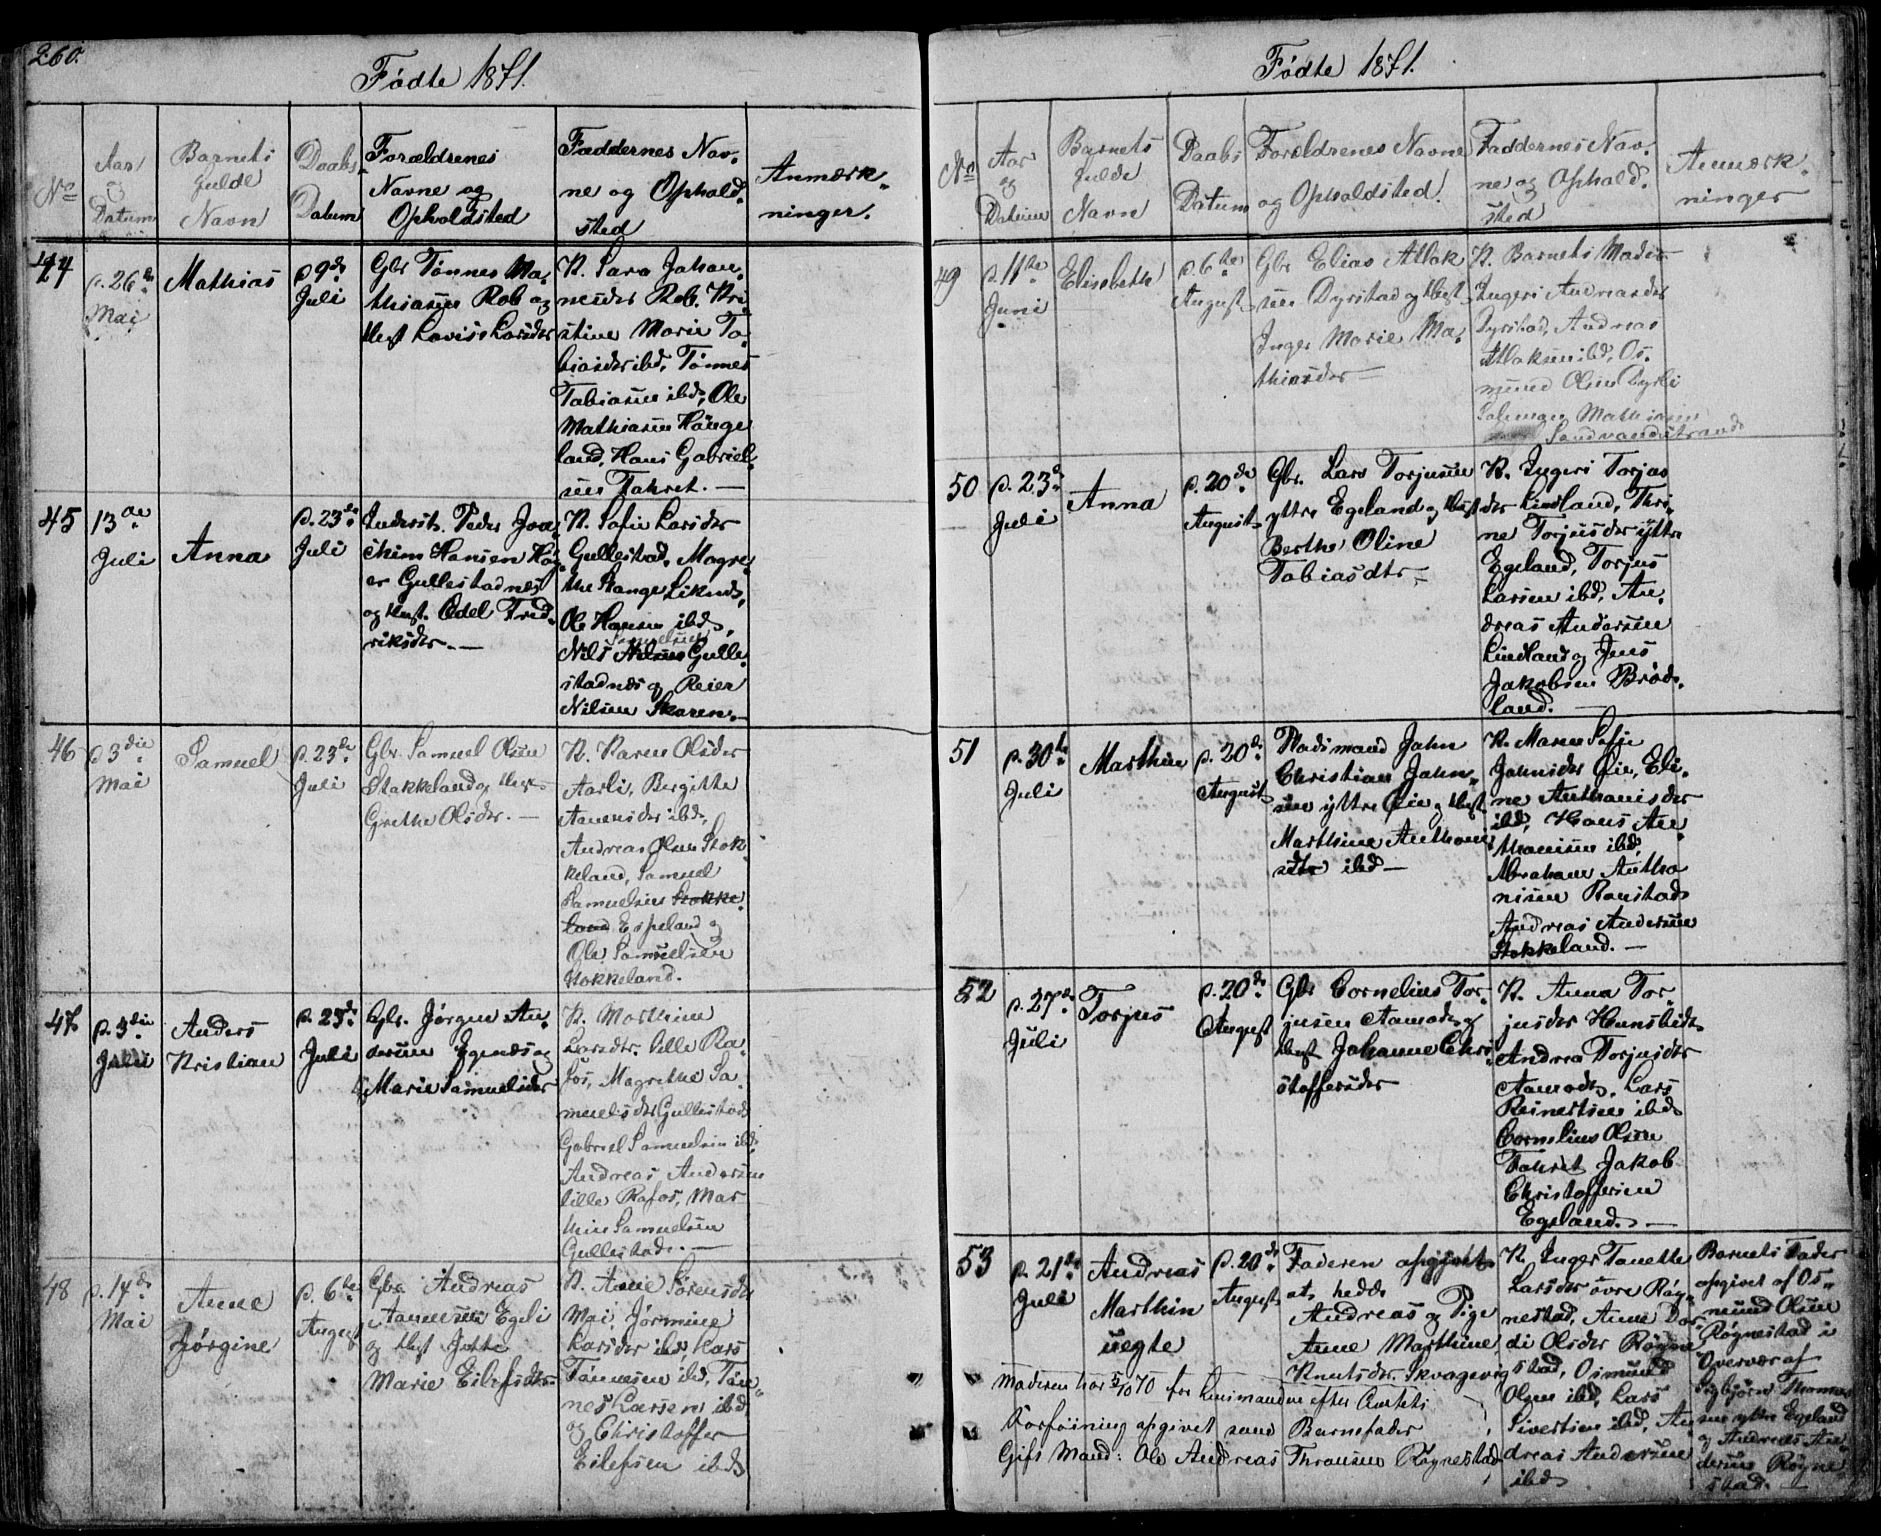 260.
Fødte 1871.
No
Aar
og
Datum
Barnets
fulde
Navn
Daabs
Datum
Forældrenes
Navne og
Opholdsted
Faddernes Nav-
ne og Ophold-
sted
Anmærk-
ninger.
44
p. 26de
Mai
Mathias
p 9de
Juli
Gbr Tønnes Ma-
thiasen Rob og
Hust Lovise Larsdtr
K. Sara Johan-
nesdtr Rob, Kri
stine Marie To-
biasdtr ibd, Tønnes
Tobiasen ibd, Ole
Mathiasen Hauge
land, Hans Gabriel-
sen Fahret. —
45
13de
Juli
Anna
p. 23de
Juli
Inderst. Peder Joa-
chim Hansen
er Gullestadnes
og Hust. Edel Fred-
riksdtr. —
K. Sofie Larsdtr
Gullestad, Magre-
the Stange Liknes,
Ole Hansen ibd,
Samuelsen
Nils Nilsen Gulle-
stadnes og Reier
Nilsen Skaren. —
46
p 3die
Mai
Samuel
p. 23de
Juli
Gbr. Samuel Olsen
Stokkeland og Hust
Grethe Olsdtr. —
K. Karen Olsdtr
Aarli, Bergitte
Aanensdtr ibd,
Andreas Olsen Stok-
keland, Samuel
Samuelsen Stokke-
land Espeland og
Ole Samuelsen
Stokkeland.
47
p. 3die
Juli
Anders
Kristian
p. 23de
Juli
Gbr. Jørgen An-
dersen Egenes og
Marie Samuelsdtr
K. Marthine
Larsdtr. lille Ra-
fos, Magrethe Sa-
muelsdtr Gullestad
Gabriel Samuelsen ibd.
Andreas Andersen
lille Rafos, Mar
thin Samuelsen
Gullestad. —
48
p. 14de
Mai
Anne
Jørgine
p. 6te
August
Gbr. Andreas
Aanensen Egeli
og Hust Jutte
Marie Eilefsdtr.
K. Anne Sørensdtr
Mai, Jørmine
Larsdtr ibd, Lars
Tønnesen ibd, Tøn-
nes Larsen ibd,
og Christoffer
Eilefsen ibd
Fødte 1871.
No
Aar
og
Datum
Barnets
fulde
Navn
Daabs
Datum
Forældrenes Navne
og Opholdsted.
Faddernes Nav-
ne og Ophold-
sted
Anmærk-
ninger
49
p. 11te
Juni
Elisabeth
p. 6te
August
Gbr Elias Atlak
sen Dyrstad og Hust
Inger Marie Ma-
thiasdtr —
K. Barnets Moder
Ingeri Andreasdtr
Dyrstad, Andreas
Atlaksen ibd, Os-
mund Olsen Dyrli
Salomon Mathiasen
Sandvandstrand
50
p. 23de
Juli
Anna
p. 20de
August
Gbr. Lars Torjusen
yttre Egeland og Hust
Berthe Oline
Tobiasdtr —
K. Ingeri Torjus
dtr Lindland, Thri-
ne Torjusdtr yttre
Egeland, Torjus
Larsen ibd, An-
dreas Andersen
Lindland og Jens
Jakobsen Brød-
land.
51
p. 30te
Juli
Marthin
p. 20de
August
Pladsmand John
Christian John-
sen yttre Øie og Hust
Marthine Anthoni
sdtr ibd —
K. Maren Sofie
Johnsdtr Øie, Eli-
ne Anthonisdtr
ibd, Hans An-
thonisen ibd,
Abraham Antho
nisen Ronestad
Andreas Andersen
Stokkeland. —
52
p. 27de
Juli
Torjus
p. 20de
August
Gbr Cornelius Tor-
jusen Aamodt og
Hust Johanne Chri-
stoffersdtr
K. Anna Tor-
jusdtr Hunsbedt
Andrea Torjusdtr
Aamodt, Lars
Reinertsen ibd
Cornelius Olsen
Fahret Jakob
Christoffersen
Egeland. —
53
p. 21de
Juli
Andreas
Marthin
uegte
p. 20de
August
Faderen opgivet
at hedde
Andreas og Pige
Anne Marthine
Knutsdtr. Skvagevig
K. Inger Tanette
Larsdtr øvre Røg-
nestad, Anne Dor-
di Olsdtr Røgne
stad, Osmund
Olsen ibd, Lars
Sivertsen ibd, An
dreas Andersen
ibd
Barnets Fader
opgivet af Os-
mund Olsen
Røgnestad i
Overvær af
Sigbjørn Thomas
sen yttre Egeland
og Andreas An-
dersen Røgne
stad. —
Moderen har 5/10 70 for Lensmanden efter Amtets
Forføining opgivet som Barnefader
Gift Mand: Ole Andreas Thronsen Røgnestad